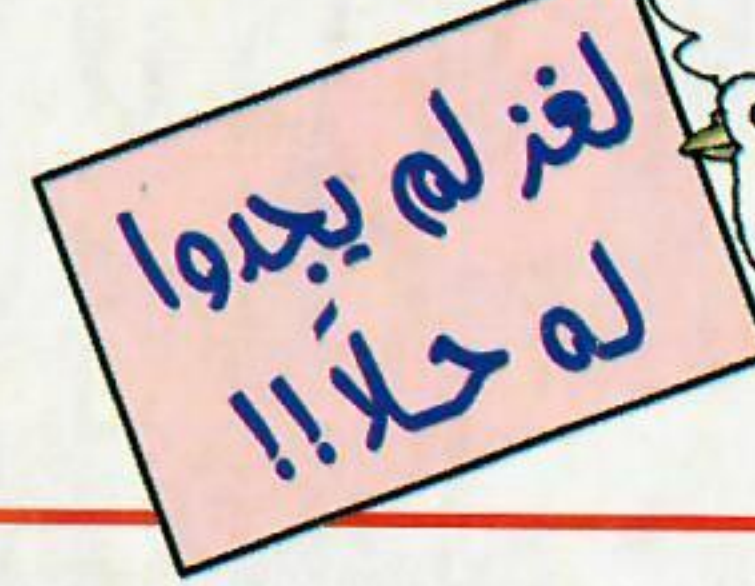 لغز لم يجدوا
له حلاً!!